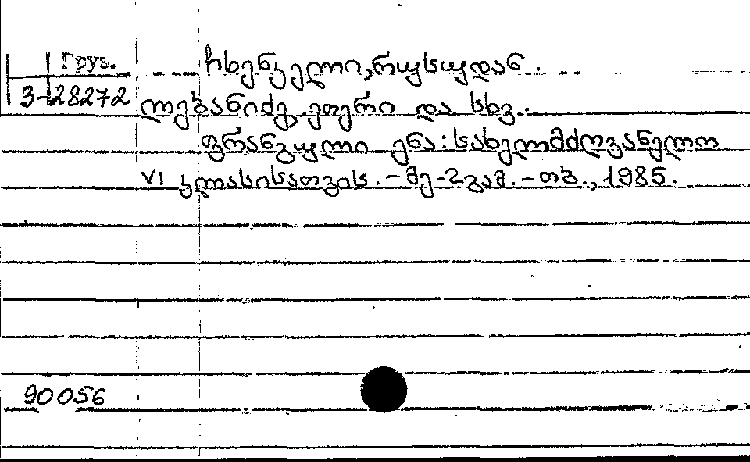 Груз.
3-28272
ჩხენკელი, რუსუდან.
ლებანიძე, ეთერი და სხვ.
ფრანგული ენა: სახელმძღვანელო
VI კლასისათვის. - მე-2 გამ. - თბ., 1985.
90056